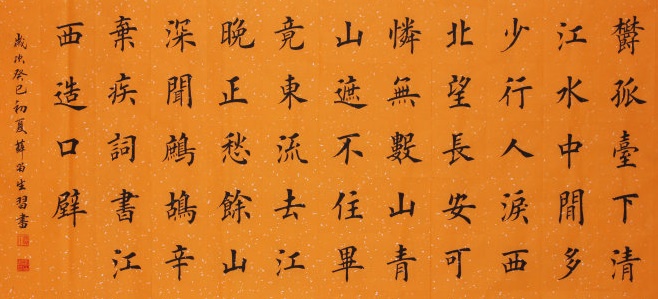 欝孤臺下清
江水中間多
少行人淚西
北望長安可
憐無數山青
山遮不住畢
竟東流去江
晚正愁餘山
深聞鷓鴣辛
棄疾詞書江
西造口壁
歲次癸巳初夏薛生習書